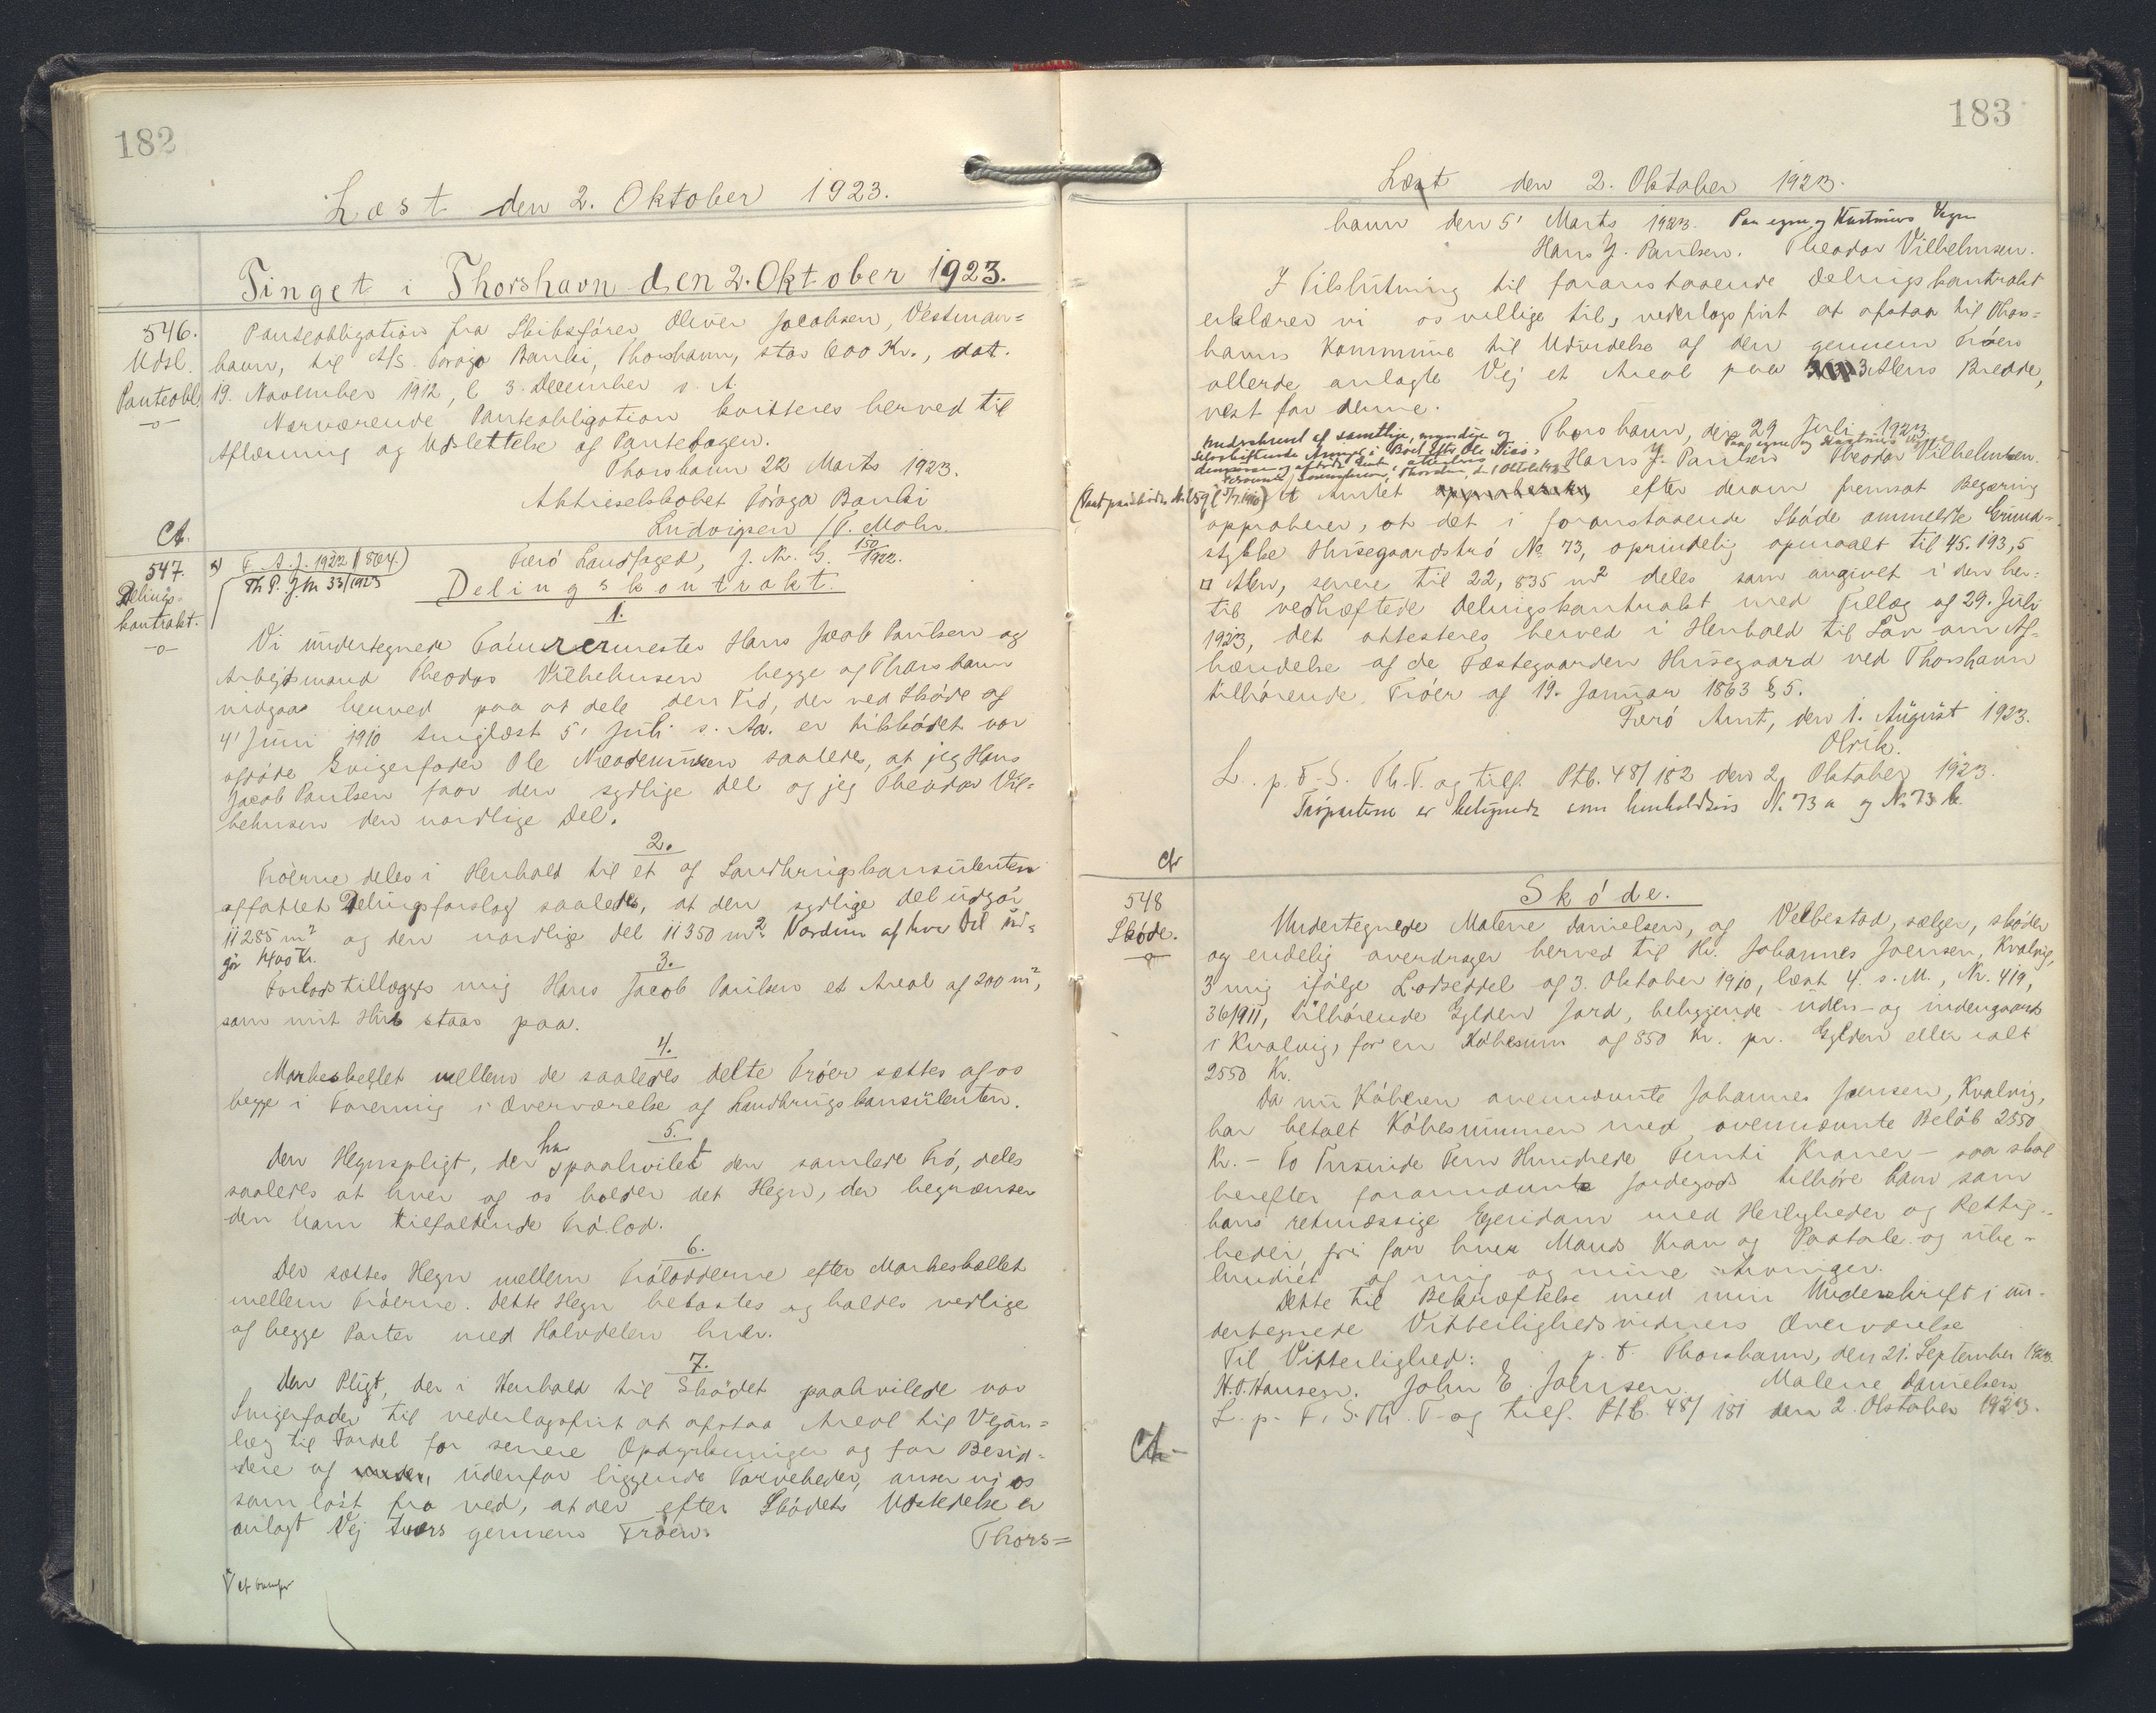 182
Læst den 2. Oktober 1923.
Tinget i Thorshavn den 2. Oktober 1923.
546.
Udsl.
Panteobl.
Panteobligation fra Skibsfører Oliver Jacobsen, Vestman=
havn, til A/S. Føroya Banki, Thorshavn, stor 600 Kr., dat.
19. November 1912, l. 3. December s. A.
Nærværende Panteobligation kvitteres herved til
Aflæsning og Udslettelse af Pantebogen.
Thorshavn 22 Marts 1923.
Aktieselskabet Føroya Banki
Ludvigsen / P. Mohr.
Ct.
547.
Delings=
kontrakt.
x) F. A. J. 1922 / 864.)
Th P. J. Nr 33/1923
Færø Landfoged, J. Nr. G. 150/1922.
Delingskontrakt.
1.
Vi undertegnede Tømrermester Hans Jacob Paulsen og
Arbejdsmand Theodor Vilhelmsen begge af Thorshavn
indgaar herved paa at dele den Trø, der ved Skøde af
4' Juni 1910 tinglæst 5' Juli s. Aa. er tilskødet vor
afdøde Svigerfader Ole Nicodemussen saaledes, at jeg Hans
Jacob Paulsen faar den sydlige Del og jeg Theodor Vil=
helmsen den nordlige Del.
2.
Trøerne deles i Henhold til et af Landbrugskonsulenten
affattet Delingsforslag saaledes, at den sydlige del udgør
11285 m² og den nordlige del 11350 m². Værdien af hver Del ud=
gør 1400 Kr.
3.
Forlods tillægges mig Hans Jacob Paulsen et Areal af 200 m²,
som mit Hus staar paa.
4.
Markeskellet mellem de saaledes delte Trøer sættes af os
begge i Forening i Overværelse af Landbrugskonsulenten.
5.
Den Hegnspligt, der har paahvilet den samlede Trø, deles
saaledes at hver af os holder det Hegn, der begrænser
den ham tilfaldende Trølod.
6.
Der sættes Hegn mellem Trølodderne efter Markeskellet
mellem Trøerne. Dette Hegn bekostes og holdes vedlige
af begge Parter med Halvdelen hver.
7.
Den Pligt, der i Henhold til Skødet paahvilede vor
Svigerfader til vederlagsfrit at afstaa Areal til Vejan=
læg til Fordel for senere Opdyrkninger og for Besid=
dere af udenfor liggende Tørveheder, anser vi os
som løst fra ved, at der efter Skødets Udstedelse er
anlagt Vej tværs gennem Trøen.
Thors=
183
Læst den 2. Oktober 1923.
havn den 5' Marts 1923. Paa egne og Hustrues Vegne
Hans J. Paulsen. Theodor Vilhelmsen.
I Tilslutning til foranstaaende Delingskontrakt
erklærer vi os villige til, vederlagsfrit at afstaa til Thors=
havns Kommune til Udvidelse af den gennem Trøen
allerede anlagte Vej et Areal paa 3 Alens Bredde,
vest for denne.
Thorshavn, den 29 Juli 1923.
Paa egne og Hustrues Vegne
Hans J. Paulsen Theodor Vilhelmsen.
Underskrevet af samtlige, myndige og
selvskiftende Arvinger i Boet efter Ole Nico=
At Amtet efter derom fremsat Begæring
approberer, at det i foranstaaende Skøde ommeldte Grund=
stykke Husegaardstrø No 73, oprindelig opmaalt til 45.193,5
□ Alen, senere til 22,835 m² deles som angivet i den her=
til vedhæftede Delingskontrakt med Tillæg af 29. Juli
1923, det attesteres herved i Henhold til Lov om Af=
hændelse af de Fæstegaarden Husegaard ved Thorshavn
tilhørende Trøer af 19. Januar 1863 § 5.
Færø Amt, den 1. August 1923.
Olrik.
L. p. F. S. Th. T. og tilf. Ptb. 48/182 den 2. Oktober 1923.
Trøparterne er betegnede som henholdsvis N. 73 a og N. 73 b.
Ct
548
Skøde.
Skøde.
Undertegnede Malene Danielsen, af Velbestad, sælger, skøder
og endelig overdrager herved til Hr. Johannes Joensen, Kvalvig,
3 mig ifølge Lodseddel af 3. Oktober 1910, læst 4. s. M., Nr. 419,
36/1911, tilhørende Gylden Jord, beliggende uden- og indengaards
i Kvalvig, for en Købesum af 850 Kr. pr. Gylden eller ialt
2550 Kr.
Da nu Køberen ovennævnte Johannes Joensen, Kvalvig,
har betalt Købesummen med ovennævnte Beløb 2550
Kr. - To Tusinde Fem Hundrede Femti Kroner - saa skal
herefter forannævnte Jordegods tilhøre ham som
hans retmæssige Ejendom med Herligheder og Rettig=
heder, fri for hver Mands Krav og Paatale og ube=
hindret af mig og mine Arvinger.
Dette til Bekræftelse med min Underskrift i un=
dertegnede Vitterlighedsvidners Overværelse
p. t. Thorshavn, den 21. September 1923.
Til Vitterlighed:
H. O. Hansen. John E. Johnsen. Malene Danielsen
L. p. F. S. Th. T. og tilf. Ptb. 48/181 den 2. Oktober 1923.
Ct